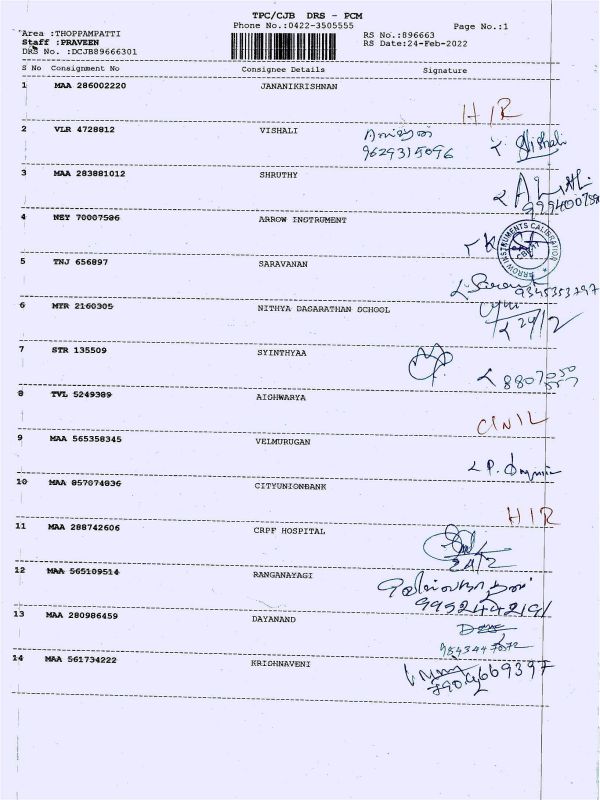 TPC/CJB DRS - PCM
Phone No.:0422-3505555
Page No.:1
Area :THOPPAMPATTI
RS No.:896663
Staff :PRAVEEN
RS Date:24-Feb-2022
DRS No. :DCJB89666301
S No Consignment No Consignee Details Signature
1 MAA 286002220 JANANIKRISHNAN
HIR
2 VLR 4728812 VISHALI
9629315096 Vishali
3 MAA 283881012 SHRUTHY
4 NEY 70007586 ARROW INSTRUMENT
ARROW INSTRUMENTS CALIBRATION
5 TNJ 656897 SARAVANAN
9345353797
6 MTR 2160305 NITHYA DASARATHAN SCHOOL
24/2
7 STR 135509 SYINTHYAA
8807050
557
8 TVL 5249389 AISHWARYA
9 MAA 565358345 VELMURUGAN
10 MAA 857074836 CITYUNIONBANK
HIR
11 MAA 288742606 CRPF HOSPITAL
24/2
12 MAA 565109514 RANGANAYAGI
9952442191
13 MAA 280986459 DAYANAND
9843447072
14 MAA 561734222 KRISHNAVENI
7904669397